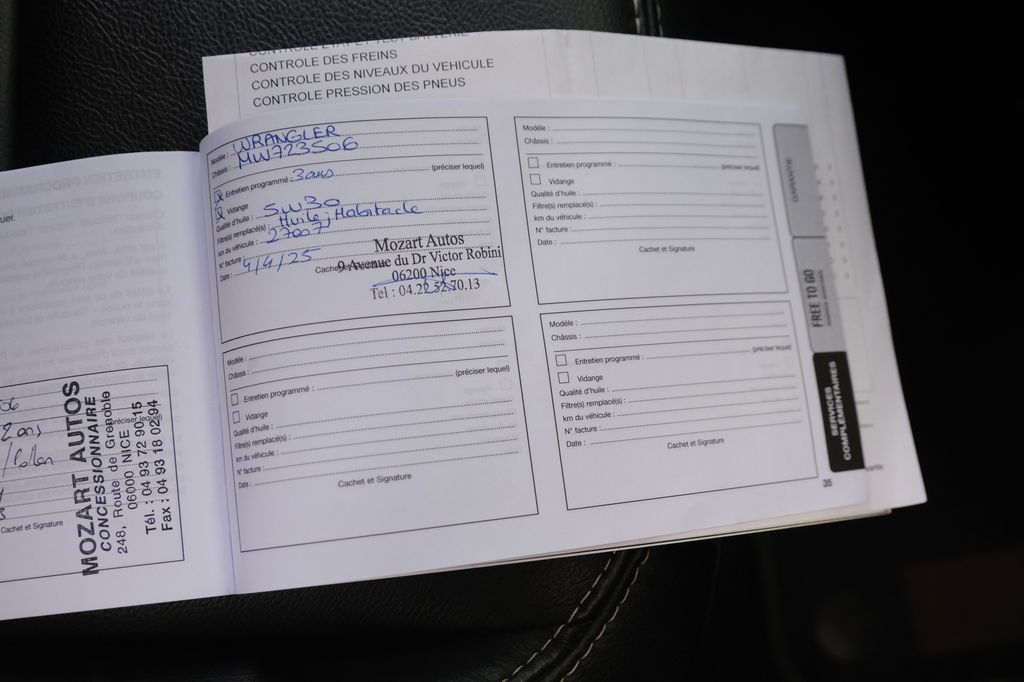 CONTROLE DES FREINS
CONTROLE DES NIVEAUX DU VEHICULE
CONTROLE PRESSION DES PNEUS
Modèle : WRANGLER
Châssis : MW723506
Entretien programmé : 3 ans (préciser lequel)
Vidange
Qualité d'huile : 5W30
Filtre(s) remplacé(s) : Huile, Habitacle
km du véhicule : 27007
N° facture
Date : 4/4/25
Mozart Autos
9 Avenue du Dr Victor Robini
06200 Nice
Tel : 04.22.52.70.13
Modèle :
Châssis :
Entretien programmé : (préciser lequel)
Vidange
Qualité d'huile :
Filtre(s) remplacé(s) :
km du véhicule :
N° facture :
Date :
Cachet et Signature
Modèle :
Châssis :
Entretien programmé : (préciser lequel)
Vidange
Qualité d'huile :
Filtre(s) remplacé(s) :
km du véhicule :
N° facture :
Date :
Cachet et Signature
Modèle :
Châssis :
Entretien programmé : (préciser lequel)
Vidange
Qualité d'huile :
Filtre(s) remplacé(s) :
km du véhicule :
N° facture :
Date :
Cachet et Signature
GARANTIE
FREE TO GO
SERVICES
COMPLÉMENTAIRES
35
uer.
2 ans
(préciser lequel)
Cachet et Signature
MOZART AUTOS
CONCESSIONNAIRE
248, Route de Grenoble
06000 NICE
Tél. : 04 93 72 90 15
Fax : 04 93 18 02 94